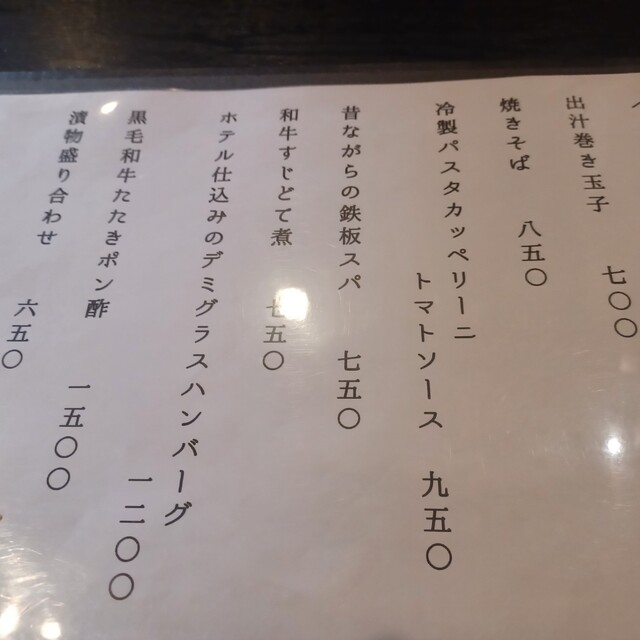 出汁巻き玉子　七〇〇
焼きそば　八五〇
冷製パスタカッペリーニ
トマトソース　九五〇
昔ながらの鉄板スパ　七五〇
和牛すじどて煮　七五〇
ホテル仕込みのデミグラスハンバーグ
一二〇〇
黒毛和牛たたきポン酢　一五〇〇
漬物盛り合わせ　六五〇